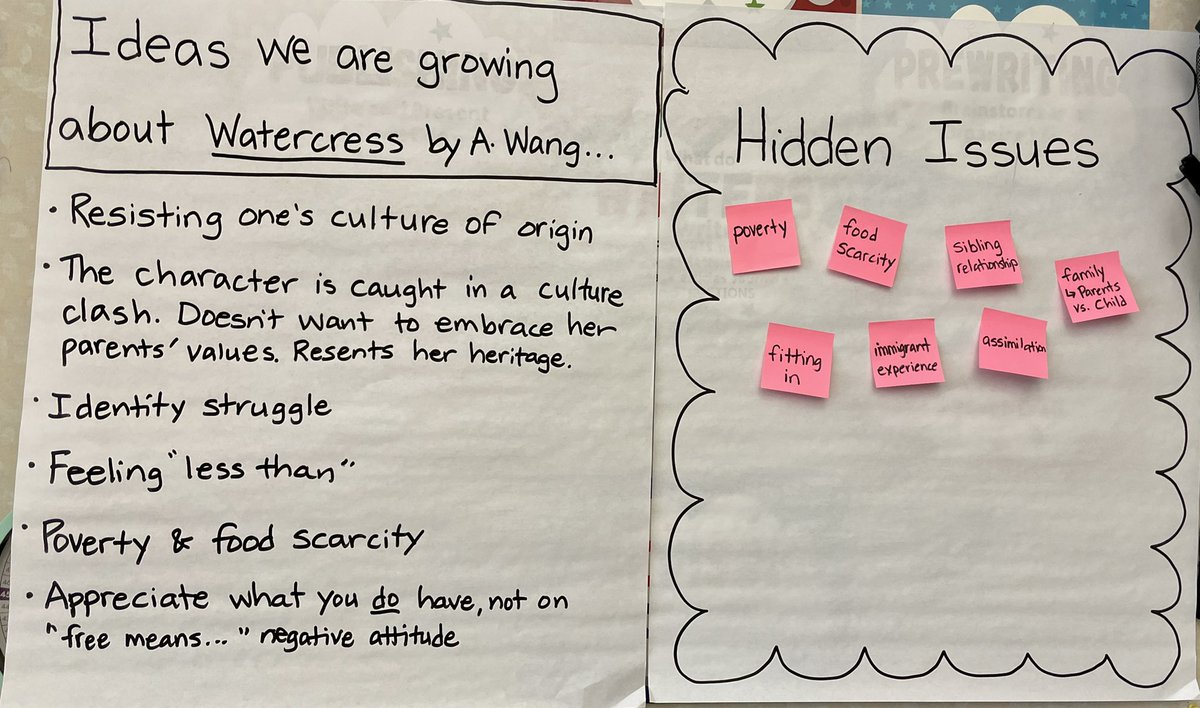 Ideas we are growing
about Watercress by A. Wang...
• Resisting one's culture of origin
• The character is caught in a culture
clash. Doesn't want to embrace her
parents' values. Resents her heritage.
• Identity struggle
• Feeling "less than"
• Poverty & food scarcity
• Appreciate what you do have, not on
"free means..." negative attitude
Hidden Issues
poverty
food
scarcity
sibling
relationship
family
↳ Parents
vs. Child
fitting
in
immigrant
experience
assimilation
PREWRITING